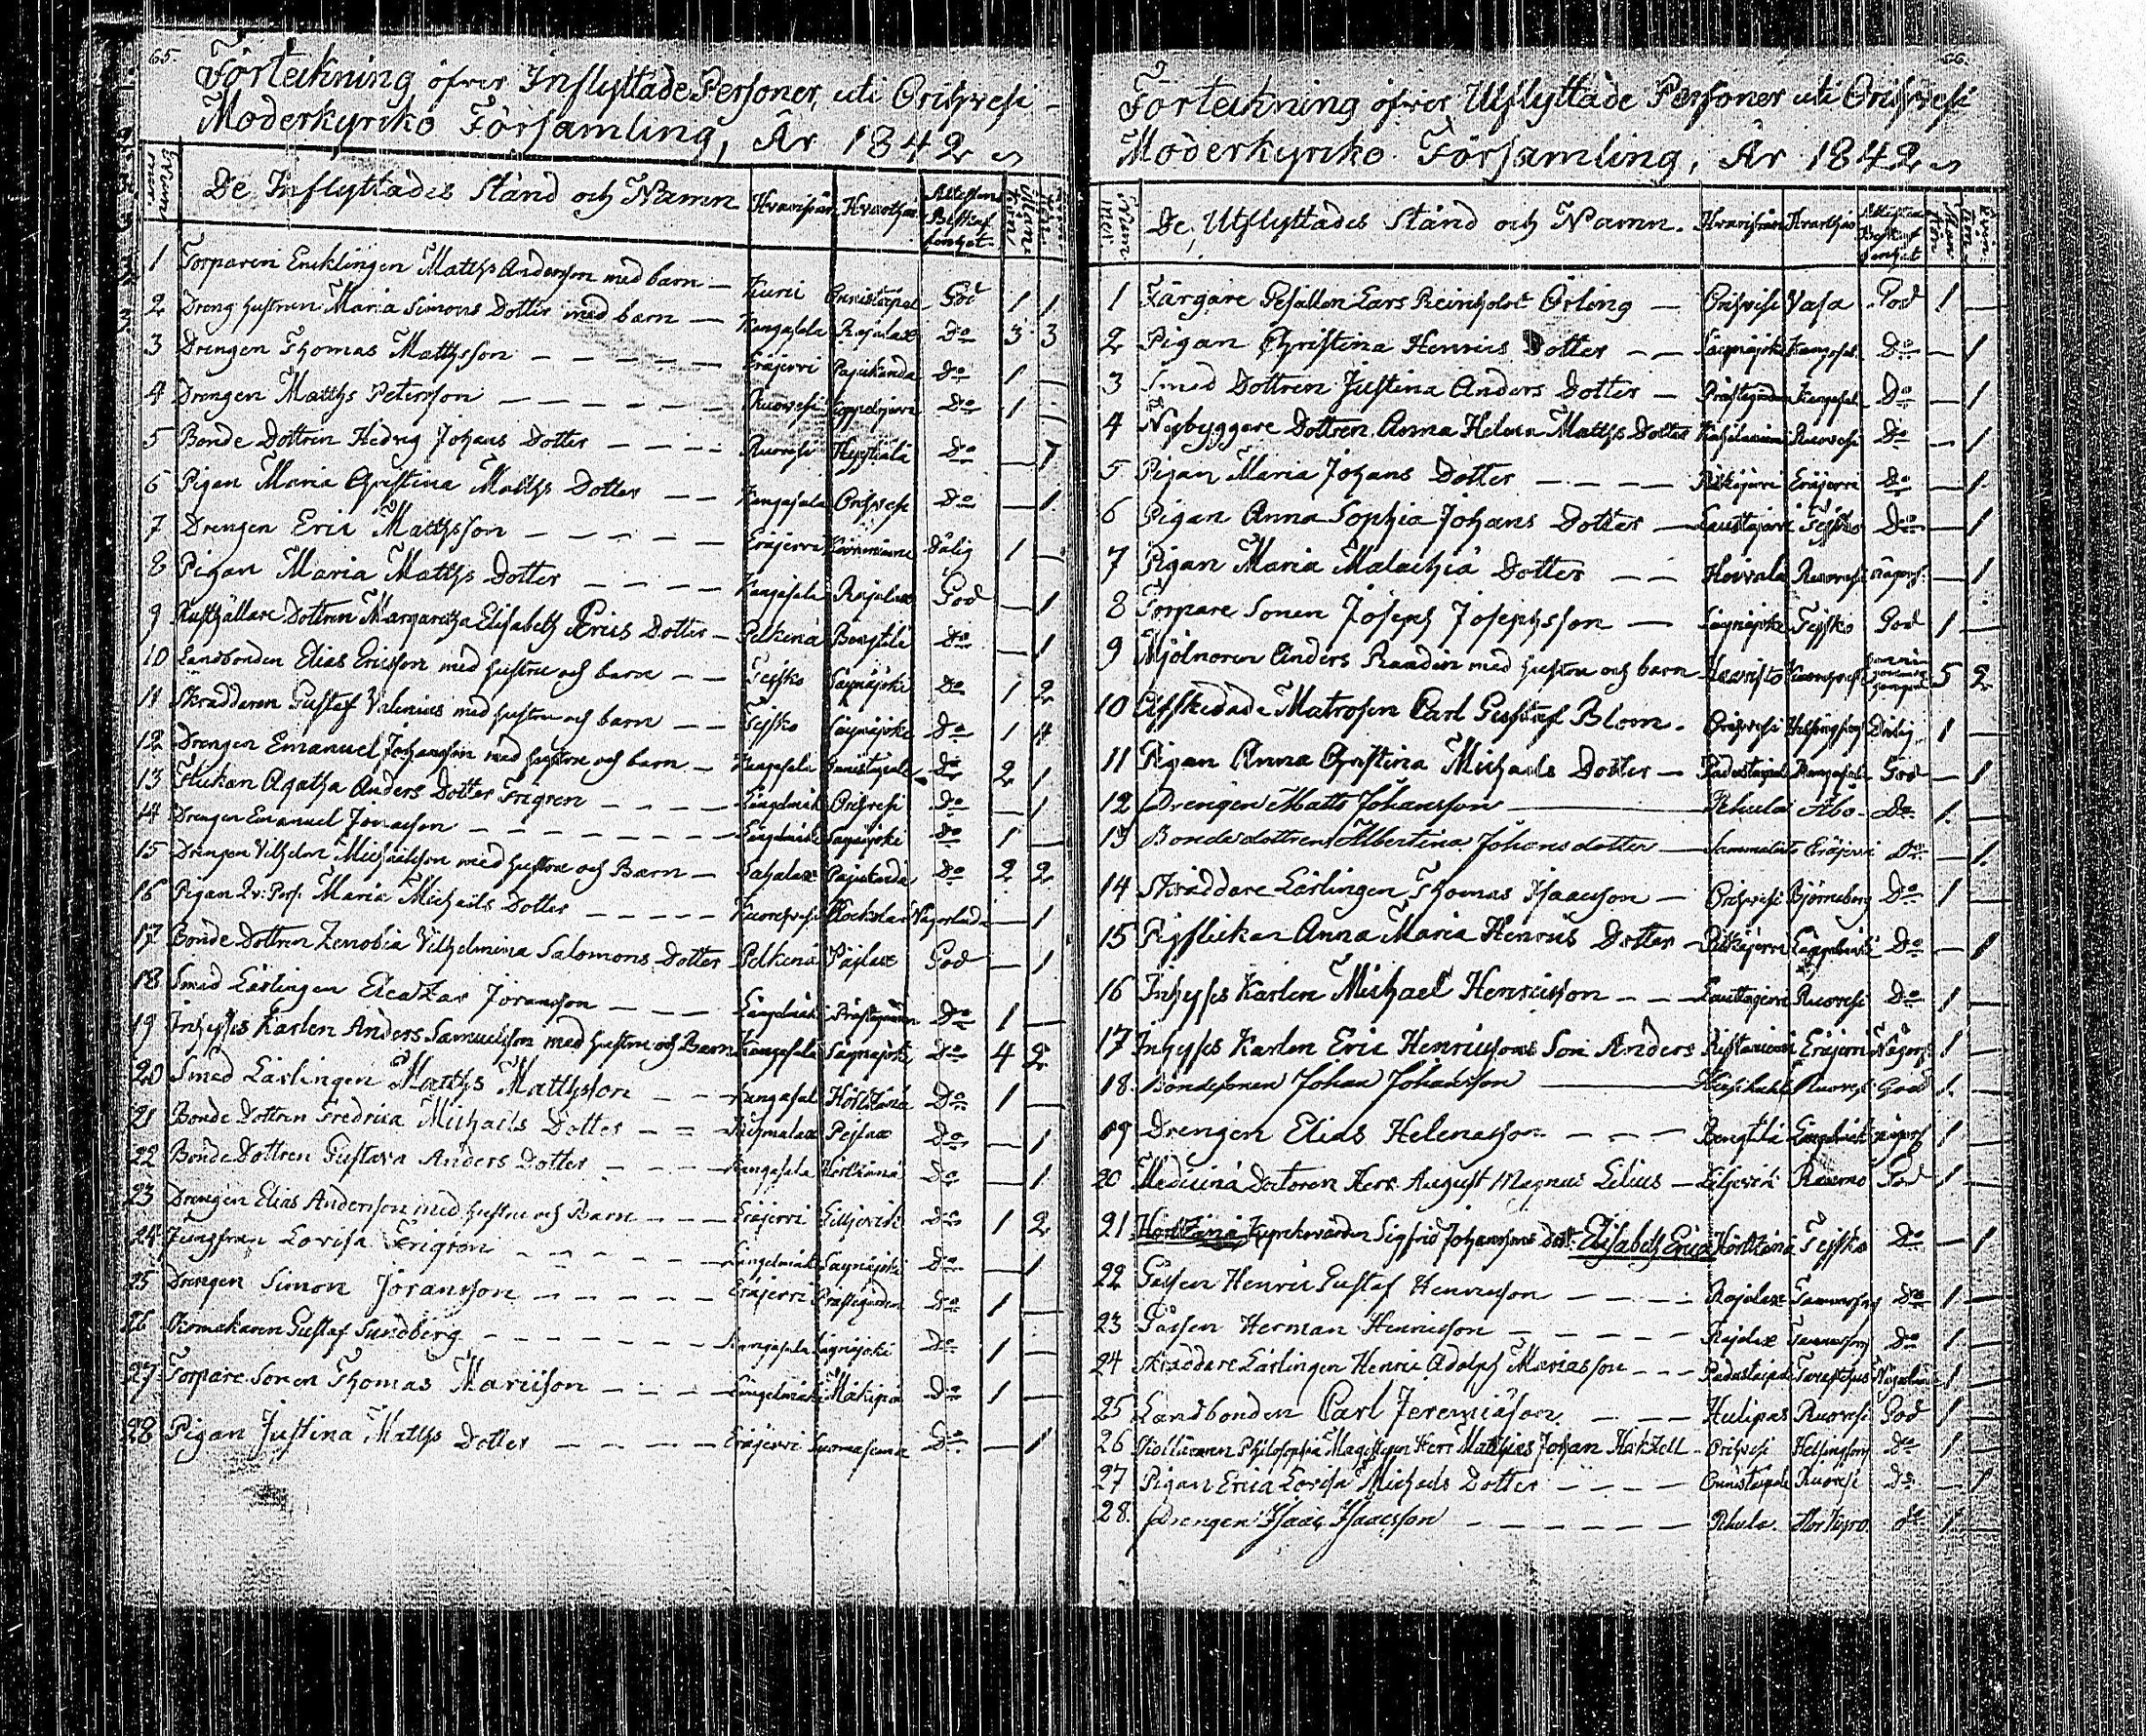 65.
Förteckning öfver Inflyttade Personer, uti Orihvesi
Moderkyrko Församling, År 1842
Num mer De Inflyttades Stånd och Namn Hvarifrån Hvarthän Attestens Beskaffenhet Mankön Qvinkön
1 Torparen Encklingen Matths Andersson med barn — Kuru Onnistaipal God 1 1
2 Dreng hustrun Maria Simons Dotter med barn — Kangasala Rajalax Do 3 3
3 Drengen Thomas Mattsson — Eräjervi Pajukanda Do 1 —
4 Drengen Matths Petersson — Ruovesi Koppelojervi Do 1 —
5 Bonde Dottren Hedvig Johans Dotter — Ruovesi Heyttiälä Do — 1
6 Pigan Maria Christina Matths Dotter — Kangasala Orihvesi Do — 1
7 Drengen Eric Matthsson — Eräjervi Dålig 1 —
8 Pigan Maria Matths Dotter — Kangasala Rajalax God — 1
9 Rusthållare Dottren Margaretha Elisabeth Erics Dotter — Pelkena Bengtilä Do — 1
10 Landbonden Elias Ericsson med hustru och barn — Teisko Säynäjoki Do 1 2
11 Skräddaren Gustaf Valenius med hustru och barn — Teisko Säynäjoki Do 1 4
12 Drengen Emanuel Johansson med hustru och barn — Kangasala Onnistaipale Do 2 1
13 Flickan Agatha Anders Dotter Frigren — Längelmäki Orihvesi Do — 1
14 Drengen Emanuel Jonasson — Längelmäki Säynäjoki Do 1 —
15 Drengen Vilhelm Michaelsson med hustru och Barn — Sahalax Pajukanda Do 2 2
16 Pigan Qv: Pers. Maria Michaels Dotter — Kuorevesi Klockolax Någorlunda — 1
17 Bonde Dottren Zenobia Vilhelmina Salomons Dotter — Pelkena Päjlax God — 1
18 Smed Lärlingen Eleazar Joransson — Längelmäki Prästegården Do 1 —
19 Inhyses Karlen Anders Samuelsson med hustru och Barn Kangasala Säynäjoki Do 4 2
20 Smed Lärlingen Matths Matthsson — Kangasal Hörtzänä Do 1 —
21 Bonde Dottren Fredrica Michaels Dotter — Kuhmalax Pejlax Do — 1
22 Bonde Dottren Gustava Anders Dotter — Kangasala Hörtzänä Do — 1
23 Drengen Elias Andersson med hustru och Barn — Eräjervi Liljevik Do 1 2
24 Jungfrun Lovisa Frigron — Längelmäki Säynäjoki Do — 1
25 Drengen Simon Joransson — Eräjervi Prästegården Do 1 —
26 Skomakaren Gustaf Sundberg — Kangasala Säynäjoki Do 1 —
27 Torpare Sonen Thomas Maricison — Längelmäki Mäkipää Do 1 —
28 Pigan Justina Matths Dotter — Eräjervi Suomasema Do — 1
66.
Förteckning öfver Utflyttade Personer uti Orihvesi
Moderkyrko Församling, År 1842
Num mer De Utflyttades Stånd och Namn. Hvarifrån Hvarthän Attestens Beskaffenhet Mankön Qvinkön
1 Färgare Gesällen Lars Reinholdt Örling — Orihvesi Vasa God 1 —
2 Pigan Christina Henrics Dotter — Säynäjoki Kangasal Do — 1
3 Smed Dottren Justina Anders Dotter — Prästegården Kangasal Do — 1
4 Nybyggare Dottren Anna Helena Matths Dotter Ruovesi Do — 1
5 Pigan Maria Johans Dotter — Pitkäjervi Eräjervi Do — 1
6 Pigan Anna Sophia Johans Dotter — Lautajervi Teisko Do — 1
7 Pigan Maria Malachiä Dotter — Hoivala Ruovesi Någorl. — 1
8 Torpare Sonen Joseph Josephsson — Säynäjoki Teisko God 1 —
9 Mjölnaren Anders Raadin med hustru och barn Haavisto Kuorevesi 5 2
10 Afskedade Matrosen Carl Gustaf Blom. Orihvesi Helsingfors Dålig 1 —
11 Pigan Anna Christina Michaels Dotter — Padustaipal Kangasal God — 1
12 Drengen Matts Johansson — Rhula Åbo Do. 1. —
13 Bondedottren Albertina Johansdotter — Sammalisto Eräjervi Do — 1.
14 Skräddare Lärlingen Thomas Isaacsson — Orihvesi Björneborg Do 1 —
15 Pigflickan Anna Maria Henrics Dotter — Pitkäjervi Längelmäki Do — 1
16 Inhyses Karlen Michael Henricsson — Lautajervi Ruovesi Do 1 —
17 Inhyses Karlen Eric Henricssons Son Anders Eräjervi Någorl 1 —
18. Bondesonen Johan Johansson — Ruovesi God 1. —
19 Drengen Elias Helenasson — Bengtilä Längelmäki Någorl 1 —
20 Medicinä Doctoren Herr August Magnus Lilius — Liljevik Raumo God 1 —
21 Hörtzänä Kyrkovärden Sigfrid Johanssons dott. Elisabeth Erica Hörtzänä Teisko Do — 1
22 Gossen Henric Gustaf Henricsson — Rajalax Tammerfors Do 1 —
23 Gossen Herman Henricsson — Rajalax Tammerfors Do 1 —
24 Skräddare Lärlingen Henric Adolph Mariasson — Padastaipal Tavastehus Någorlunda 1 —
25 Landbonden Carl Jeremiäson — Hulipas Ruovesi God 1 —
26 Philosophiä Magistern Herr Mathias Johan Hakzell — Orihvesi Helsingfors Do 1 —
27 Pigan Erica Lovisa Michaels Dotter — Onnistaipale Ruovesi Do — 1
28. Drengen Isaac Isaacsson — Rhula. Storkyro do 1. —